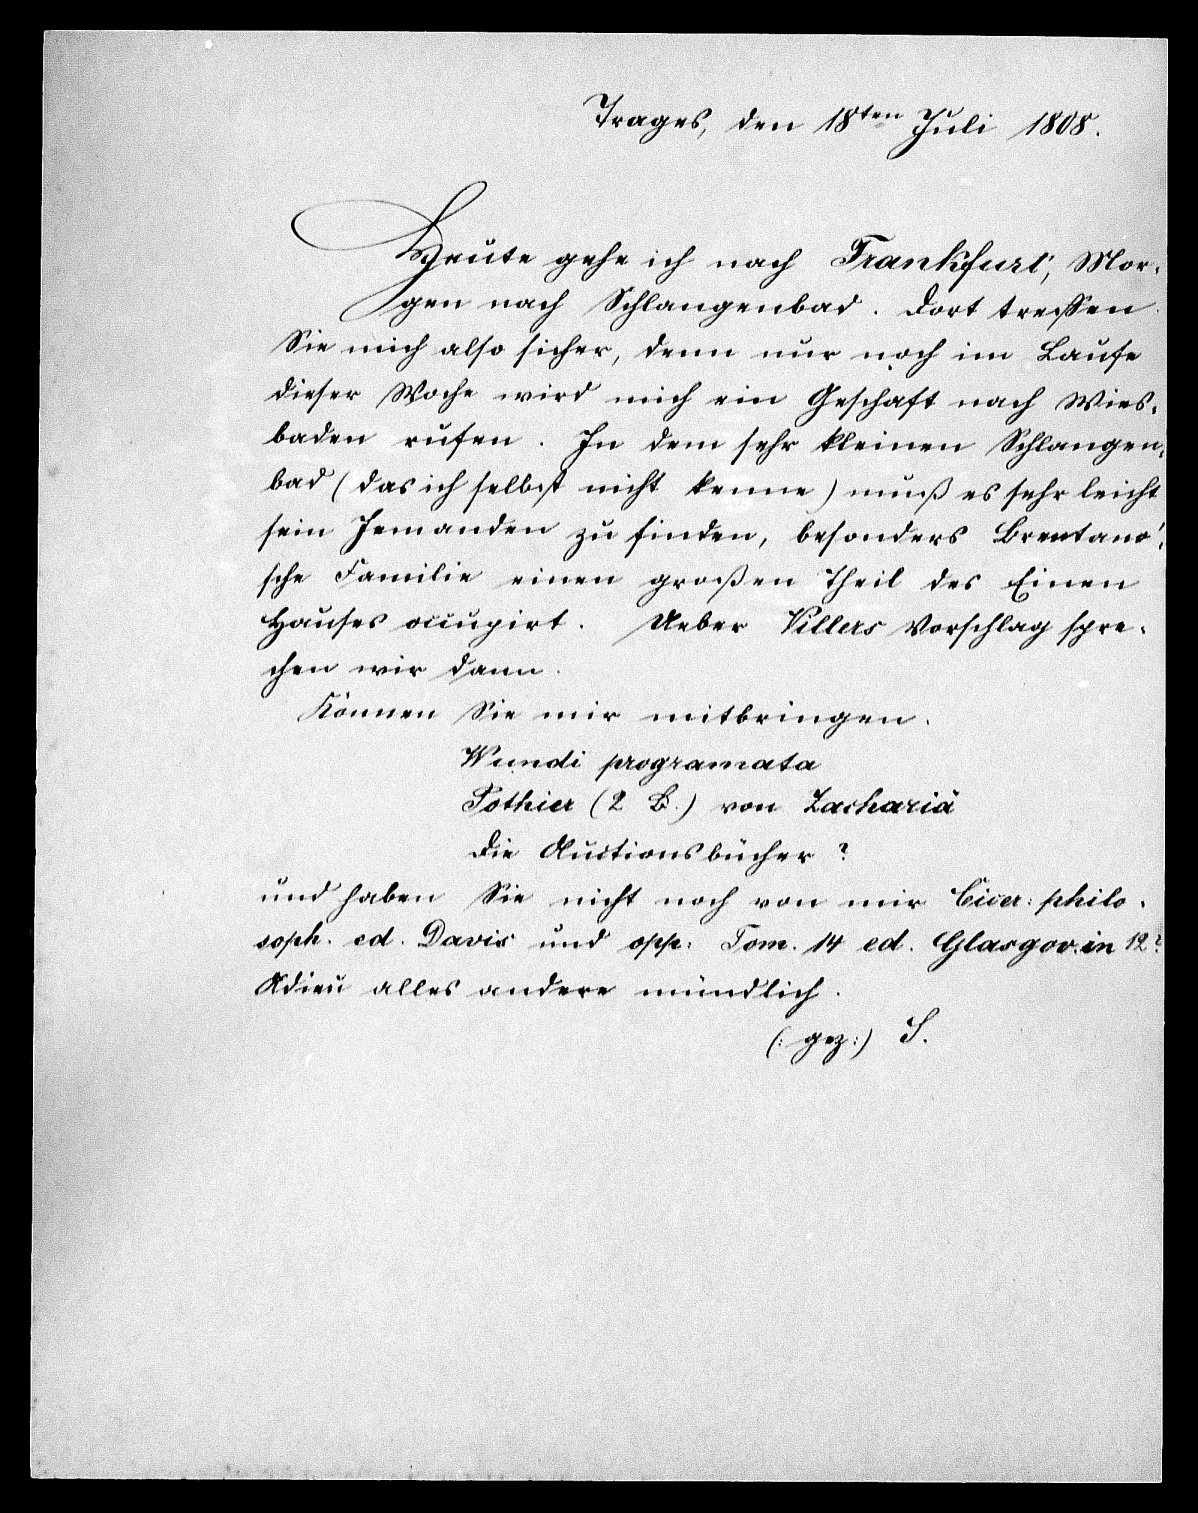 Trages, den 18ten Juli 1808.
Heute gehe ich nach Frankfurt, Mor-
gen nach Schlangenbad. Dort treffen
Sie mich also sicher, denn nur noch im Laufe
dieser Woche wird mich ein Geschäft nach Wies-
baden rufen. In dem sehr kleinen Schlangen-
bad (das ich selbst nicht kenne) muß es sehr leicht
sein Jemanden zu finden, besonders Brentano'-
sche Familie einen großen Theil des Einen
Hauses occupirt. Ueber Villers Vorschlag spre-
chen wir dann.
Können Sie mir mitbringen.
Wundi programata
Pothier (2 B.) von Zachariä
die Auctionsbücher?
und haben Sie nicht noch von mir Cicer: philo-
soph. ed. Davis und opp: Tom. 14 ed. Glasgov. in 12?
Adieu alles andere mündlich.
(: gez:) S.